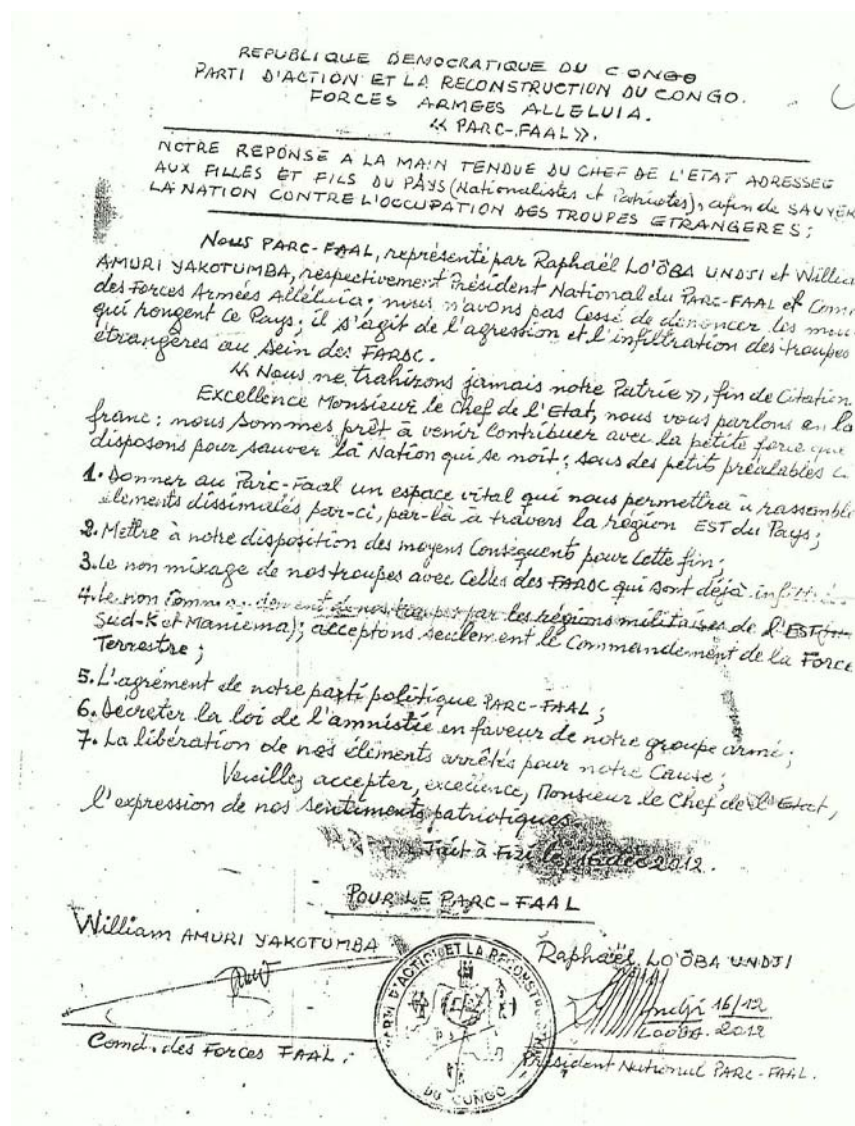 REPUBLIQUE DEMOCRATIQUE DU CONGO
PARTI D'ACTION ET LA RECONSTRUCTION DU CONGO.
FORCES ARMEES ALLELUIA.
« PARC-FAAL ».
NOTRE REPONSE A LA MAIN TENDUE DU CHEF DE L'ETAT ADRESSEE
AUX FILLES ET FILS DU PAYS (Nationalistes et Patriotes), afin de SAUVER
LA NATION CONTRE L'OCCUPATION DES TROUPES ETRANGERES;
Nous PARC-FAAL, représenté par Raphaël LO'ÔBA UNDJI et Willia
AMURI YAKOTUMBA, respectivement Président National du PARC-FAAL et Com
des Forces Armées Alléluia; nous n'avons pas Cessé de dénoncer les
qui rongent Ce Pays; il s'agit de l'agression et l'infiltration des troupes
étrangères au sein des FARDC.
« Nous ne trahirons jamais notre Patrie », fin de Citation
Excellence Monsieur le Chef de l'Etat, nous vous parlons en
franc: nous sommes prêt à venir Contribuer avec la petite force que
disposons pour sauver la Nation qui se noit; sous des petits préalables
1. Donner au Parc-Faal un espace vital qui nous permettra à rassemble
éléments dissimulés par-ci, par-là à travers la région EST du Pays;
2. Mettre à notre disposition des moyens Conséquents pour Cette fin;
3. Le non mixage de nos troupes avec Celles des FARDC qui sont déjà
4. Le non Commandement de nos troupes par les régions militaires de l'EST
Sud-K et Maniema); acceptons seulement le Commandement de la Force
Terrestre;
5. L'agrément de notre parti politique PARC-FAAL;
6. Décreter la loi de l'amnistie en faveur de notre groupe armé;
7. La libération de nos éléments arrêtés pour notre Cause;
Veuillez accepter, excellence, Monsieur le Chef de l'Etat,
l'expression de nos sentiments patriotiques.
Fait à Fizi le, 16 déc 2012.
POUR LE PARC-FAAL
William AMURI YAKOTUMBA
Raphaël LO'ÔBA UNDJI
PARTI D'ACTION ET LA RECONSTRUCTION
DU CONGO
undji 16/12
LOOBA. 2012
Comd. des Forces FAAL.
Président National PARC-FAAL.